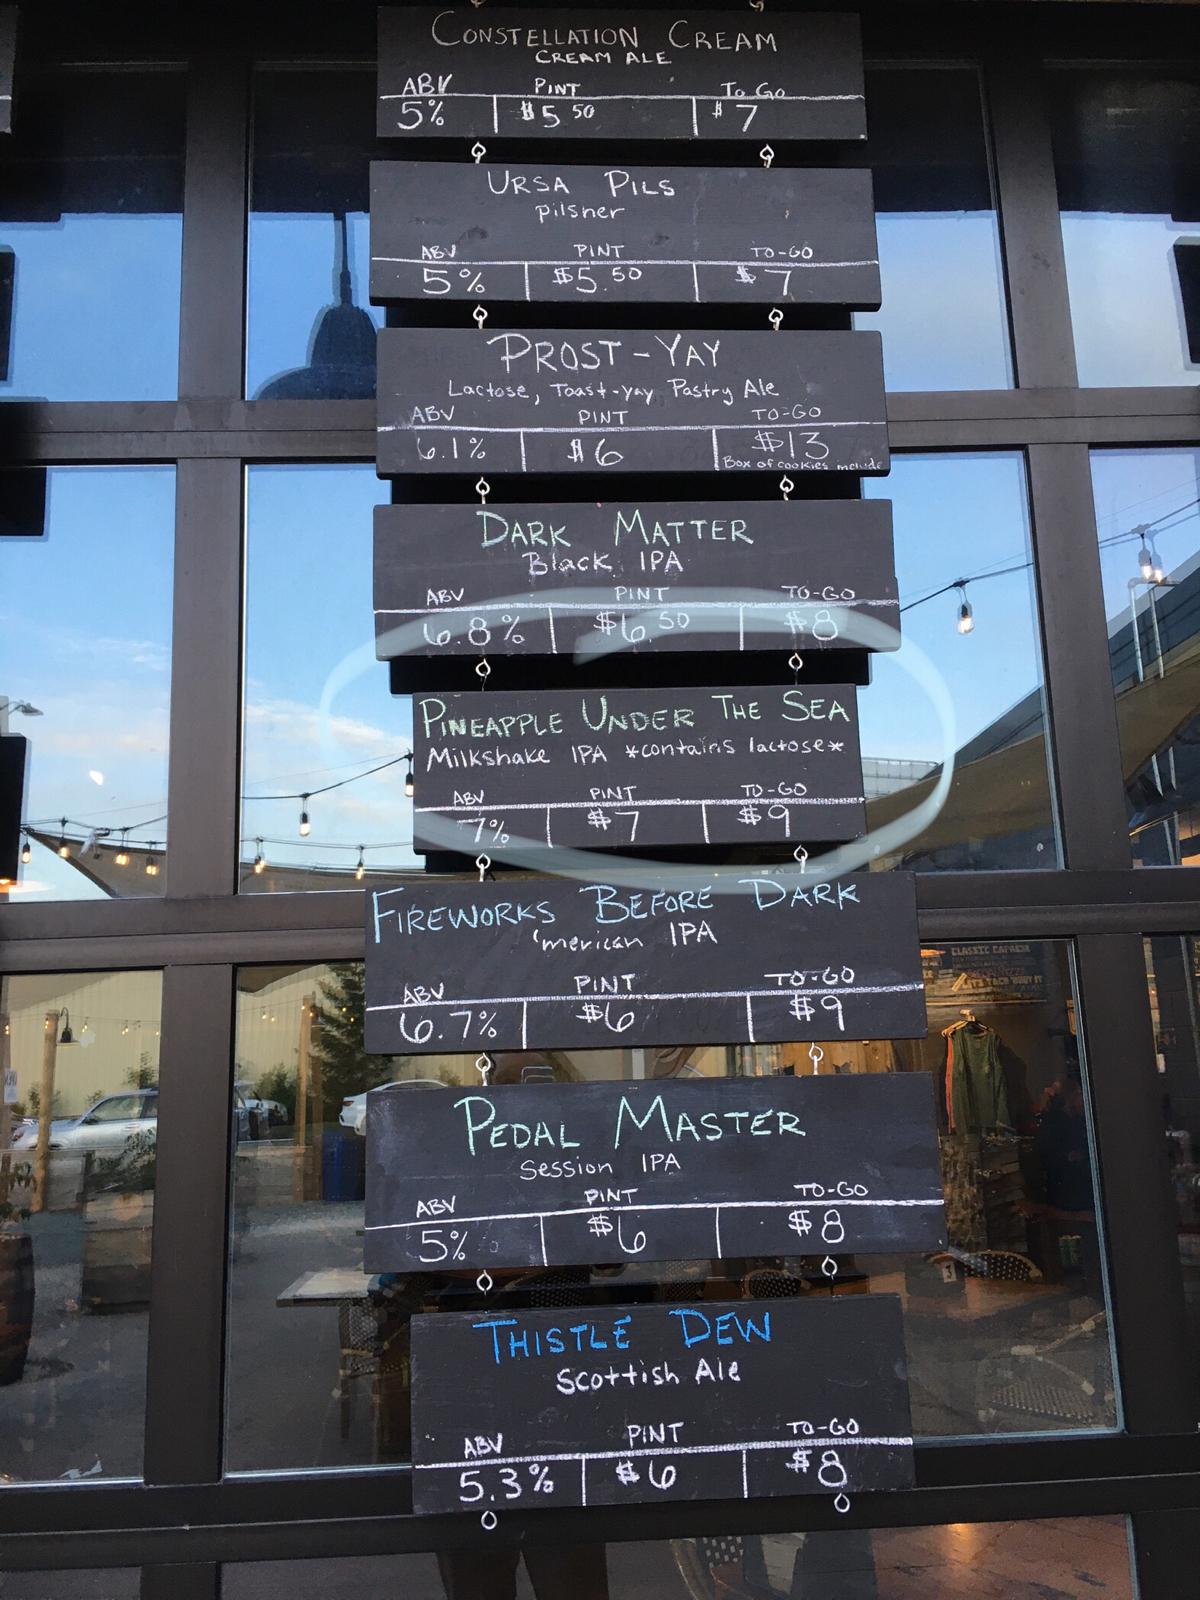 CONSTELLATION CREAM
CREAM ALE
ABV PINT To Go
5% $5 50 $7
URSA PILS
pilsner
ABV PINT TO-GO
5% $5.50 $7
PROST-YAY
Lactose, Toast-yay Pastry Ale
ABV PINT TO-GO
6.1% $6 $13
Box of cookies include
DARK MATTER
Black IPA
ABV PINT TO-GO
6.8% $6.50 $8
PINEAPPLE UNDER THE SEA
Milkshake IPA *contains lactose*
ABV PINT TO-GO
7% $7 $9
FIREWORKS BEFORE DARK
'merican IPA
ABV PINT TO-GO
6.7% $6 $9
PEDAL MASTER
Session IPA
ABV PINT TO-GO
5% $6 $8
THISTLE DEW
Scottish Ale
ABV PINT TO-GO
5.3% $6 $8
CLASSIC
3